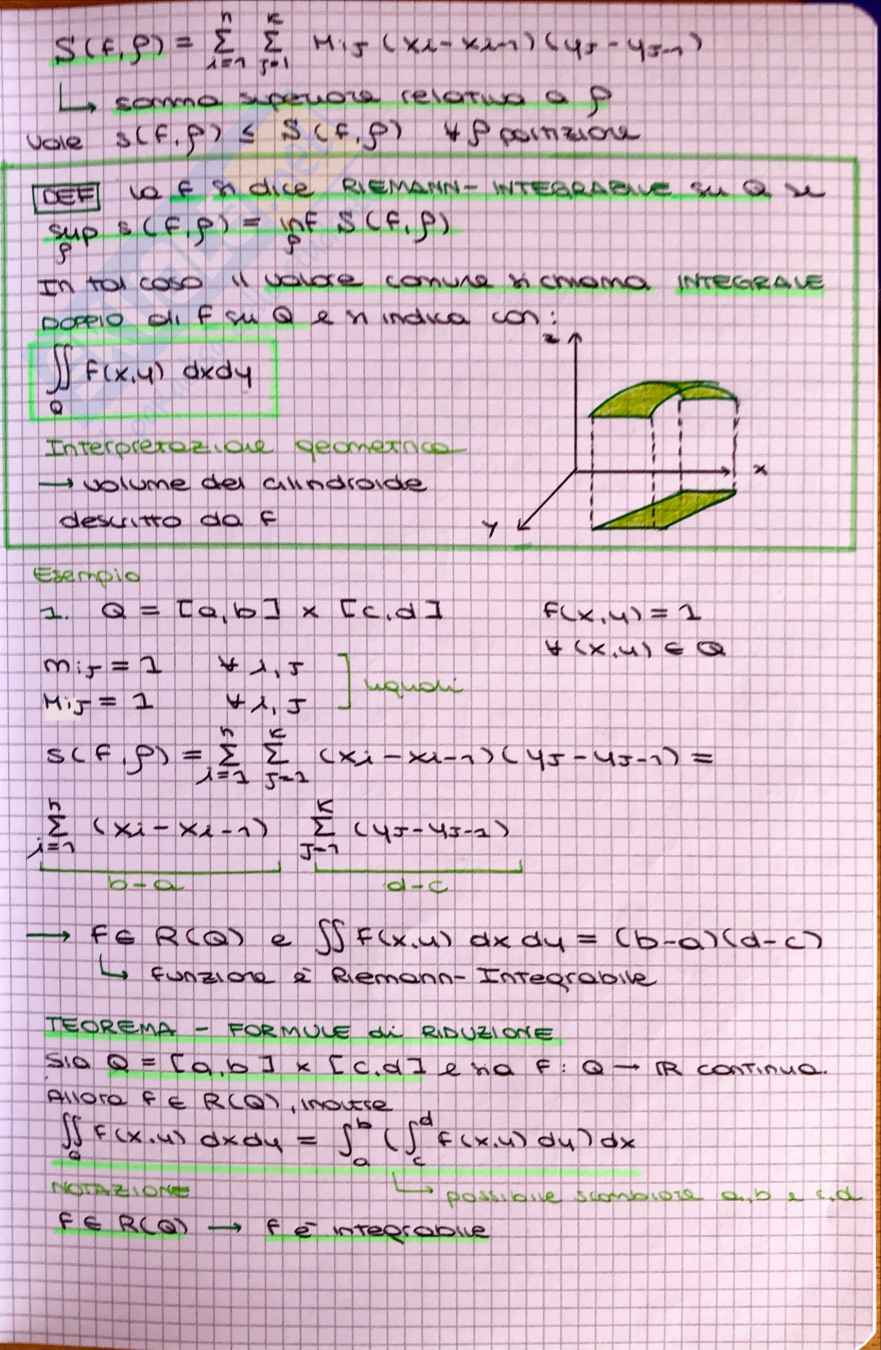 S(f,ρ) = Σ_{i=1}^{n} Σ_{j=1}^{k} Mij (xi-xi-1)(yj-yj-1)
↳ somma superiore relativa a ρ
Vale s(f,ρ) ≤ S(f,ρ) ∀ρ partizione
DEF La f si dice RIEMANN-INTEGRABILE su Q se
sup_ρ s(f,ρ) = inf_ρ S(f,ρ)
In tal caso il valore comune si chiama INTEGRALE
DOPPIO di f su Q e si indica con:
∬_Q f(x,y) dxdy
z
x
y
Interpretazione geometrica
→ volume del cilindroide
descritto da f
Esempio
1. Q = [a,b] × [c,d] f(x,y) = 1
∀ (x,y) ∈ Q
mij = 1 ∀ i,j
Mij = 1 ∀ i,j ] uguali
s(f,ρ) = Σ_{i=1}^{n} Σ_{j=1}^{k} (xi-xi-1)(yj-yj-1) =
Σ_{i=1}^{n} (xi-xi-1) Σ_{j=1}^{k} (yj-yj-1)
b-a d-c
→ f ∈ R(Q) e ∬ f(x,y) dxdy = (b-a)(d-c)
↳ funzione è Riemann-Integrabile
TEOREMA - FORMULE di RIDUZIONE
Sia Q = [a,b] × [c,d] e sia f: Q → ℝ continua.
Allora f ∈ R(Q), inoltre
∬_Q f(x,y) dxdy = ∫_a^b (∫_c^d f(x,y) dy) dx
↳ possibile scambiare a,b e c,d
NOTAZIONE
f ∈ R(Q) → f è integrabile